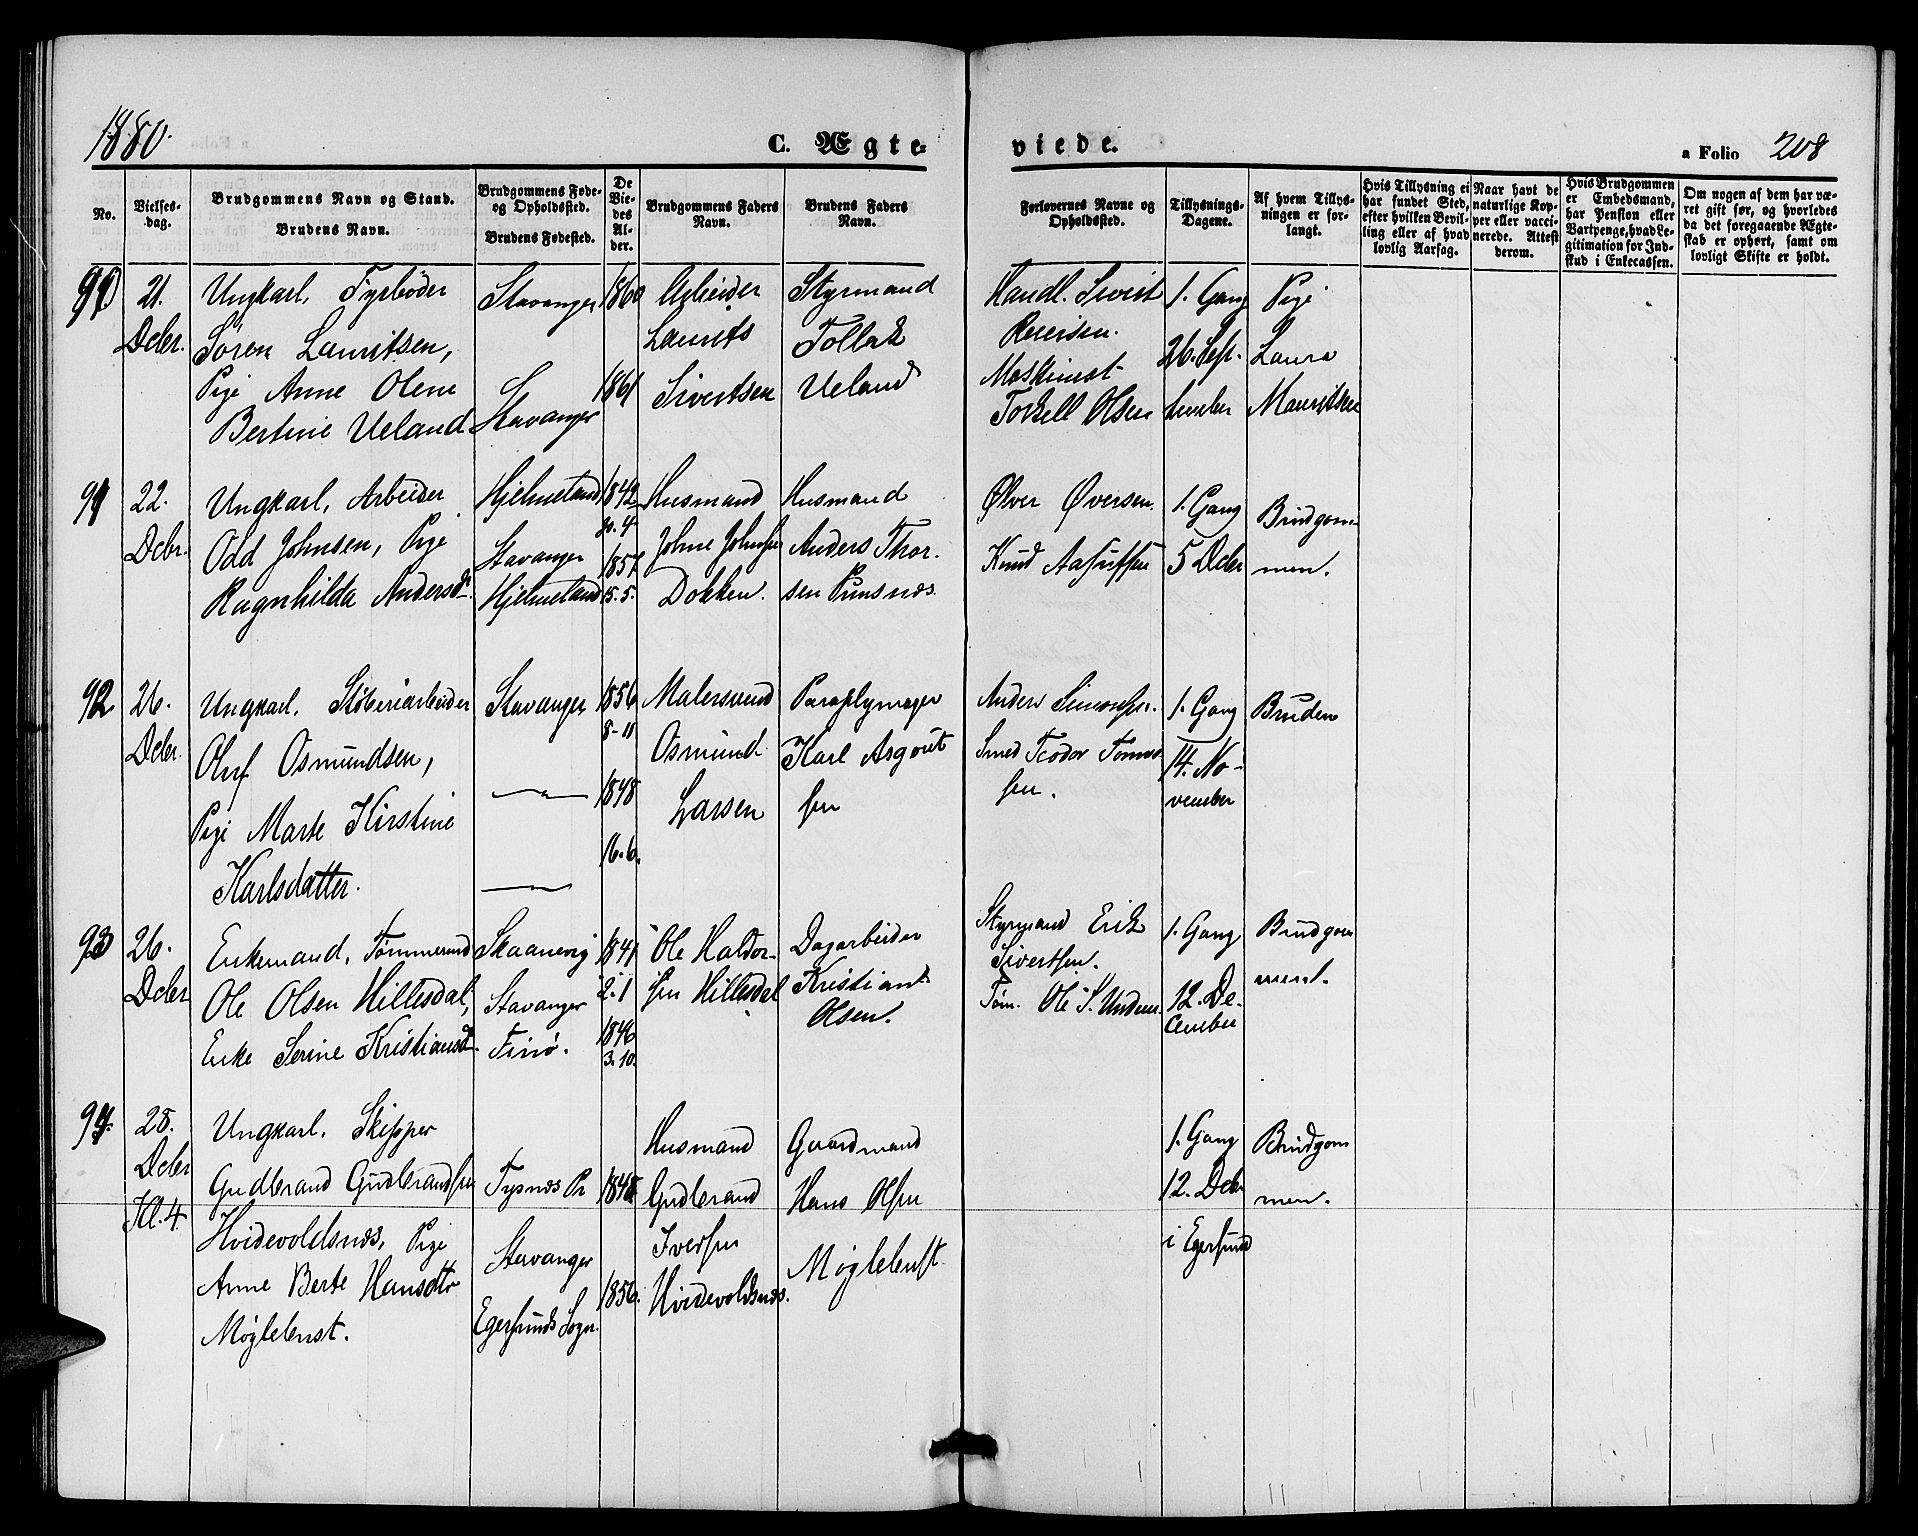 1880.
C. Ægte-
viede.
a Folio 208
No.
Vielses-
dag.
Brudgommens Navn og Stand.
Brudens Navn.
Brudgommens Føde-
og Opholdssted.
Brudens Fødested.
De
Vie-
des
Al-
der.
Brudgommens Faders
Navn.
Brudens Faders
Navn.
Forlovernes Navne og
Opholdssted.
Tillysnings-
Dagene.
Af hvem Tillys-
ningen er for-
langt.
Hvis Tillysning ei
har fundet Sted,
efter hvilken Bevil-
ling eller af hvad
lovlig Aarsag.
Naar havt de
naturlige Kop-
per eller vacci-
nerede. Attest
derom.
Hvis Brudgommen
er Embedsmand,
har Pension eller
Vartpenge, hvad Le-
gitimation for Ind-
skud i Enkecassen.
Om nogen af dem har væ-
ret gift før, og hvorledes
da det foregaaende Ægte-
skab er ophørt, samt om
lovligt Skifte er holdt.
90
21.
Dcbr.
Ungkarl, Fyrbøder
Sören Lauritsen,
Pige Anne Olene
Bertine Ueland
Stavanger
Stavanger
1860
1861
Arbeider
Laurits
Sivertsen
Styrmand
Tollak
Ueland
Handl. Sivert
Reiersen.
Maskinist
Torkell Olsen
1. Gang
26. Sep-
tember
Pige
Laura
Mauritsen
91
22.
Dcbr.
Ungkarl, Arbeider
Odd Johnsen, Pige
Ragnhilda Andersd.
Hjelmeland
Stavanger
Hjelmeland
1842
20.4
1857
15.5.
Husmand
Johne Johnsen
Dokken.
Husmand
Anders Thor-
sen Punsnæs.
Ølver Øversen.
Knud
1. Gang
5 Dcbr
Brudgom-
men.
92
26.
Dcbr.
Ungkarl. Støberiarbeider
Oluf Osmundsen,
Pige Marte Kirstine
Karlsdatter.
Stavanger
—"—
—"—
1856
8-11
1848
16.6.
Malersvend
Osmund
Larsen
Paraplymager
Karl Asgout
sen
Anders Simonsen.
Smed Teodor Tønne
sen.
1. Gang
14. No-
vember
Bruden
93
26.
Dcbr
Enkemand, Tømmermd
Ole Olsen Hillesdal,
Enke Serine Kristiansd.
Skaanevig
Stavanger
Finø.
1841
2.1
1846
3.10.
Ole Haldor-
sen Hillesdal
Dagarbeider
Kristian
Olsen.
Styrmand Erik
Sivertsen.
Tøm. Ole S.
1. Gang
12. De-
cember
Brudgom
men.
94.
28.
Dcbr
Kl. 4
Ungkarl. Skipper
Gudbrand Gudbrandsen
Hvidevoldsnæs, Pige
Anne Berte Hansdtr
Møglebust.
Tysnæs Pr
Stavanger
Egersunds Sogn.
1845
1856.
Husmand
Gudbrand
Iversen
Hvidevoldsnæs.
Gaardmand
Hans Olsen
Møglebust.
1. Gang
12. Dcbr
i Egersund
Brudgom
men.